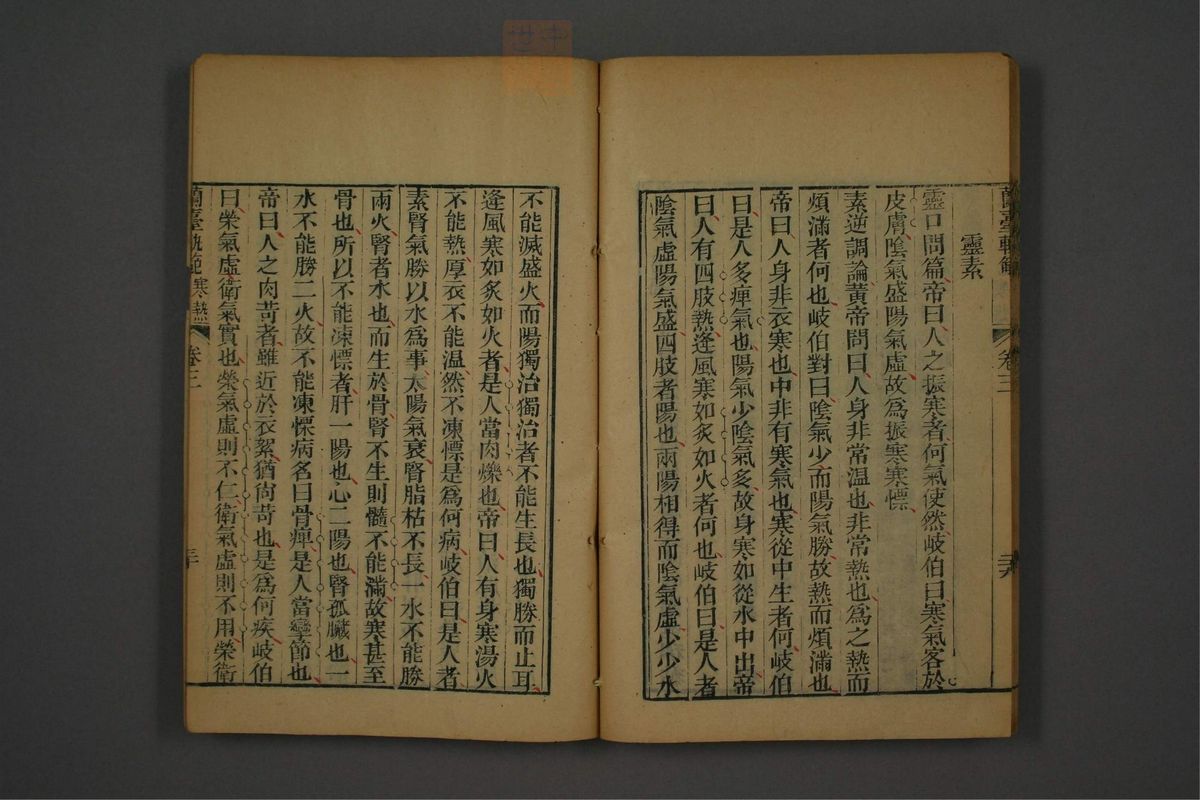 蘭臺軌範
卷三
靈素
靈口問篇帝曰人之振寒者何氣使然岐伯曰寒氣客於
皮膚陰氣盛陽氣虛故爲振寒寒慄
素逆調論黃帝問曰人身非常温也非常熱也爲之熱而
煩滿者何也岐伯對曰陰氣少而陽氣勝故熱而煩滿也
帝曰人身非衣寒也中非有寒氣也寒從中生者何岐伯
曰是人多痺氣也陽氣少陰氣多故身寒如從水中出帝
曰人有四肢熱逢風寒如炙如火者何也岐伯曰是人者
陰氣虛陽氣盛四肢者陽也兩陽相得而陰氣虛少少水
不能滅盛火而陽獨治獨治者不能生長也獨勝而止耳
逢風寒如炙如火者是人當肉爍也帝曰人有身寒湯火
不能熱厚衣不能温然不凍慄是爲何病岐伯曰是人者
素腎氣勝以水爲事太陽氣衰腎脂枯不長一水不能勝
兩火腎者水也而生於骨腎不生則髓不能滿故寒甚至
骨也所以不能凍慄者肝一陽也心二陽也腎孤臟也一
水不能勝二火故不能凍慄病名曰骨痺是人當攣節也
帝曰人之肉苛者雖近於衣絮猶尙苛也是爲何疾岐伯
曰榮氣虛衛氣實也榮氣虛則不仁衛氣虛則不用榮衛
蘭臺軌範
寒熱
卷三
三十